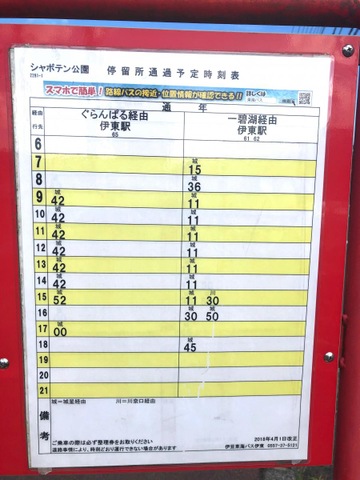 シャボテン公園 停留所通過予定時刻表
2281-1
スマホで簡単！路線バスの接近・位置情報が確認できる!!
詳しくは
通年
経由 ぐらんぱる経由 一碧湖経由
行先 伊東駅 伊東駅
65 61 62
6
城
7 15
城
8 36
城 城
9 42 11
城 城
10 42 11
城 城
11 42 11
城 城
12 42 11
城 城
13 42 11
城 城
14 42 11
城 城 川
15 52 11 30
城 城
16 30 50
城
17 00
城
18 45
19
20
21
備考
城=城星経由 川=川奈口経由
ご乗車の際は必ず整理券をお取りください
道路事情により、時刻どおり運行できない場合があります
2018年4月1日改正
伊豆東海バス伊東 0557-37-5121